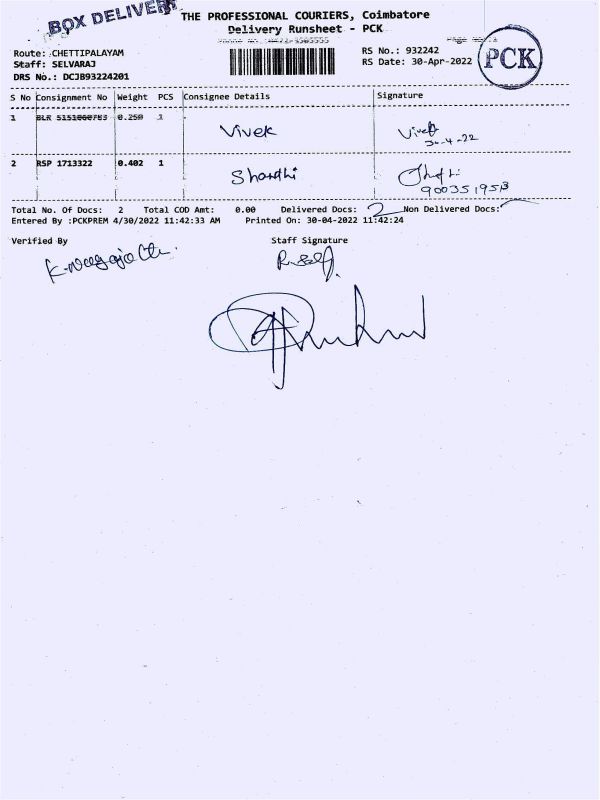 BOX DELIVERY
THE PROFESSIONAL COURIERS, Coimbatore
Delivery Runsheet - PCK
Route: CHETTIPALAYAM
RS No.: 932242
PCK
Staff: SELVARAJ
RS Date: 30-Apr-2022
DRS No.: DCJB93224201
S No Consignment No Weight PCS Consignee Details Signature
1 BLR 5151060783 0.250 1 Vivek Vivek
30-4-22
2 RSP 1713322 0.402 1 Shanthi
Total No. Of Docs: 2 Total COD Amt: 0.00 Delivered Docs: 2 Non Delivered Docs:
Entered By :PCKPREM 4/30/2022 11:42:33 AM Printed On: 30-04-2022 11:42:24
Verified By Staff Signature